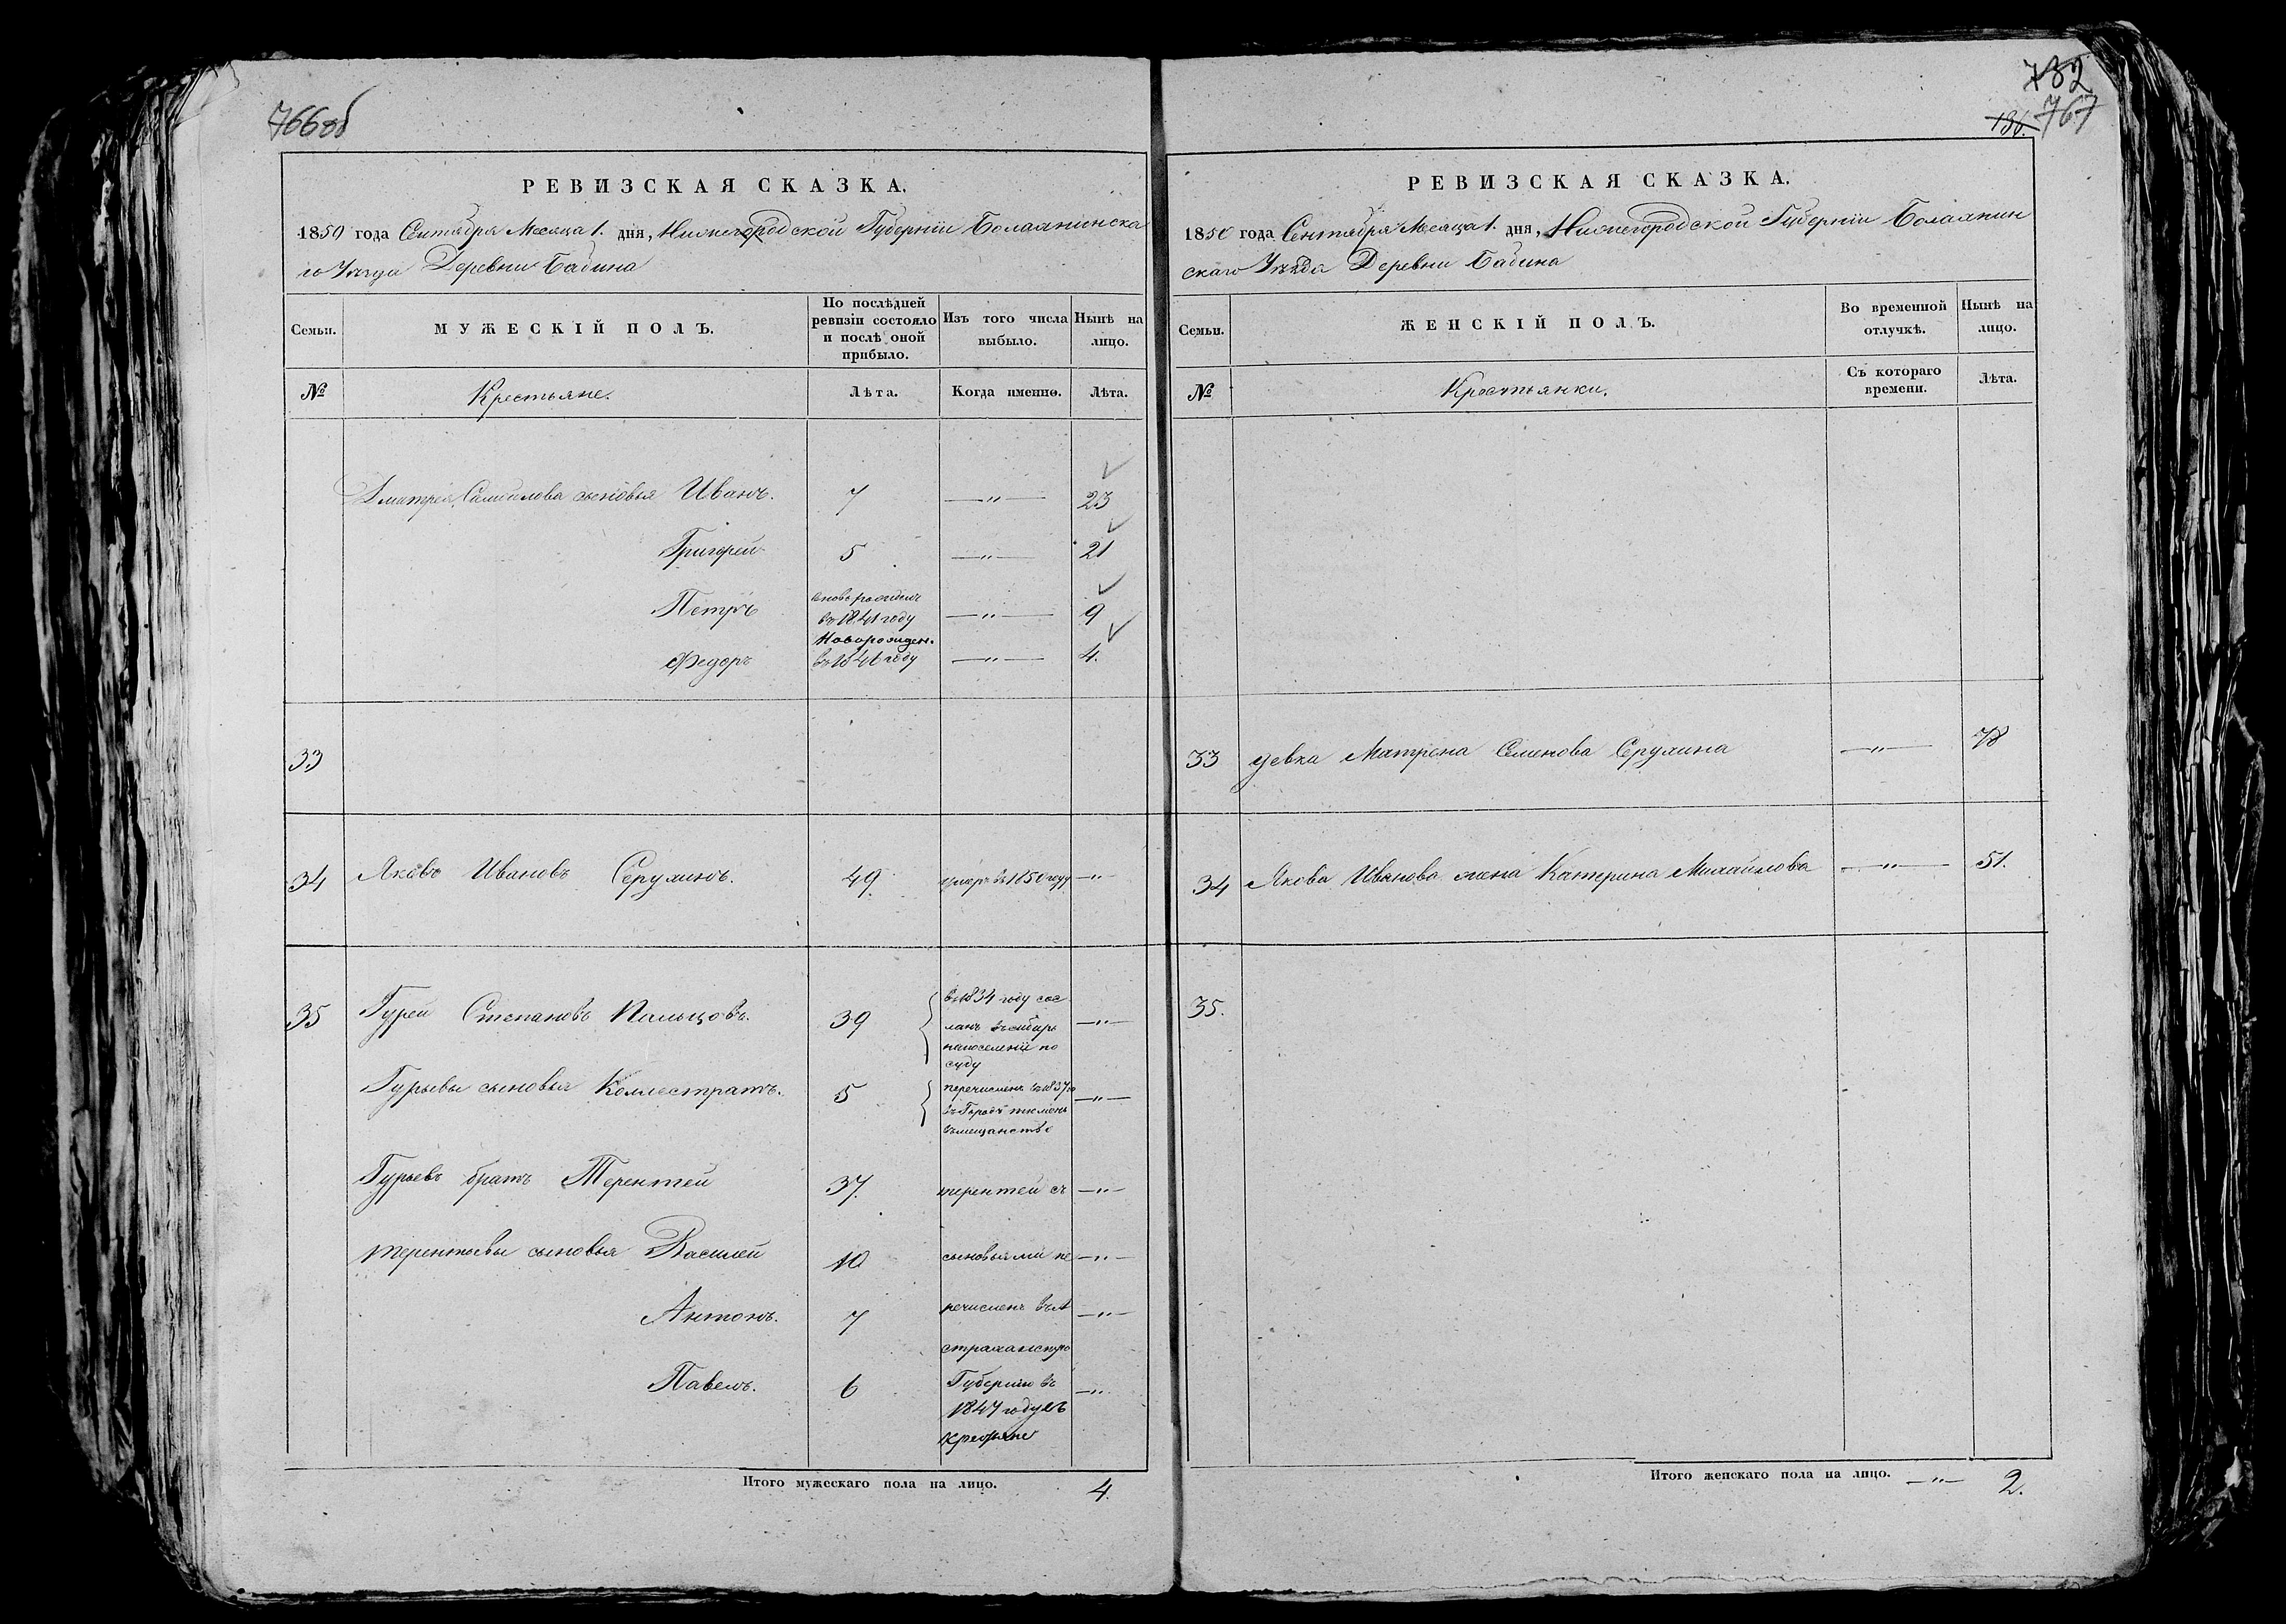 766об
РЕВИЗСКАЯ СКАЗКА.
1850 года Сентября Месяца 1. дня, Нижегородской Губернiи Балахнинска
го Уѣзда Деревни Бабина
Семьи. МУЖЕСКIЙ ПОЛЪ. По послѣдней ревизiи состояло и послѣ оной прибыло. Изъ того числа выбыло. Нынѣ на лицо.
№ Крестьяне. Лѣта. Когда именно. Лѣта.
Дмитрея Самойлова сыновья Иванъ. 7 —"— 23
Григорей 5 —"— 21
Петръ вновь рожденъ въ 1841 году —"— 9
Федоръ Новорожден. въ 1846 году —"— 4.
33
34 Яковъ Ивановъ Серухинъ. 49 умеръ въ 1850 году —"—
35 Гурей Степановъ Пальцовъ. 39 въ 1834 году сос —"—
ланъ въ сибирь
на поселенiе по
суду
Гурьевы сыновья Коллестратъ. 5 перечисленъ въ 1837 го —"—
въ Городъ тюмень
въ мещанство
Гурьевъ братъ Терентей 37. терентей съ —"—
терентьевы сыновья Василей 10 сыновьями пе —"—
Антонъ. 7 речисленъ въ А —"—
страханскую
Павелъ. 6 Губернiю въ —"—
1847 году въ
крестьяне
Итого мужескаго пола на лицо. 4.
732
136. 767
РЕВИЗСКАЯ СКАЗКА.
1850 года Сентября Месяца 1. дня, Нижегородской Губернiи Балахнин
скаго Уѣзда Деревни Бабина
Семьи. ЖЕНСКIЙ ПОЛЪ. Во временной отлучкѣ. Нынѣ на лицо.
№ Крестьянки. Съ котораго времени. Лѣта.
33 девка Матрена Семенова Серухина —"— 78
34 Якова Иванова жена Катерина Михайлова —"— 51.
35.
Итого женскаго пола на лицо. —"— 2.